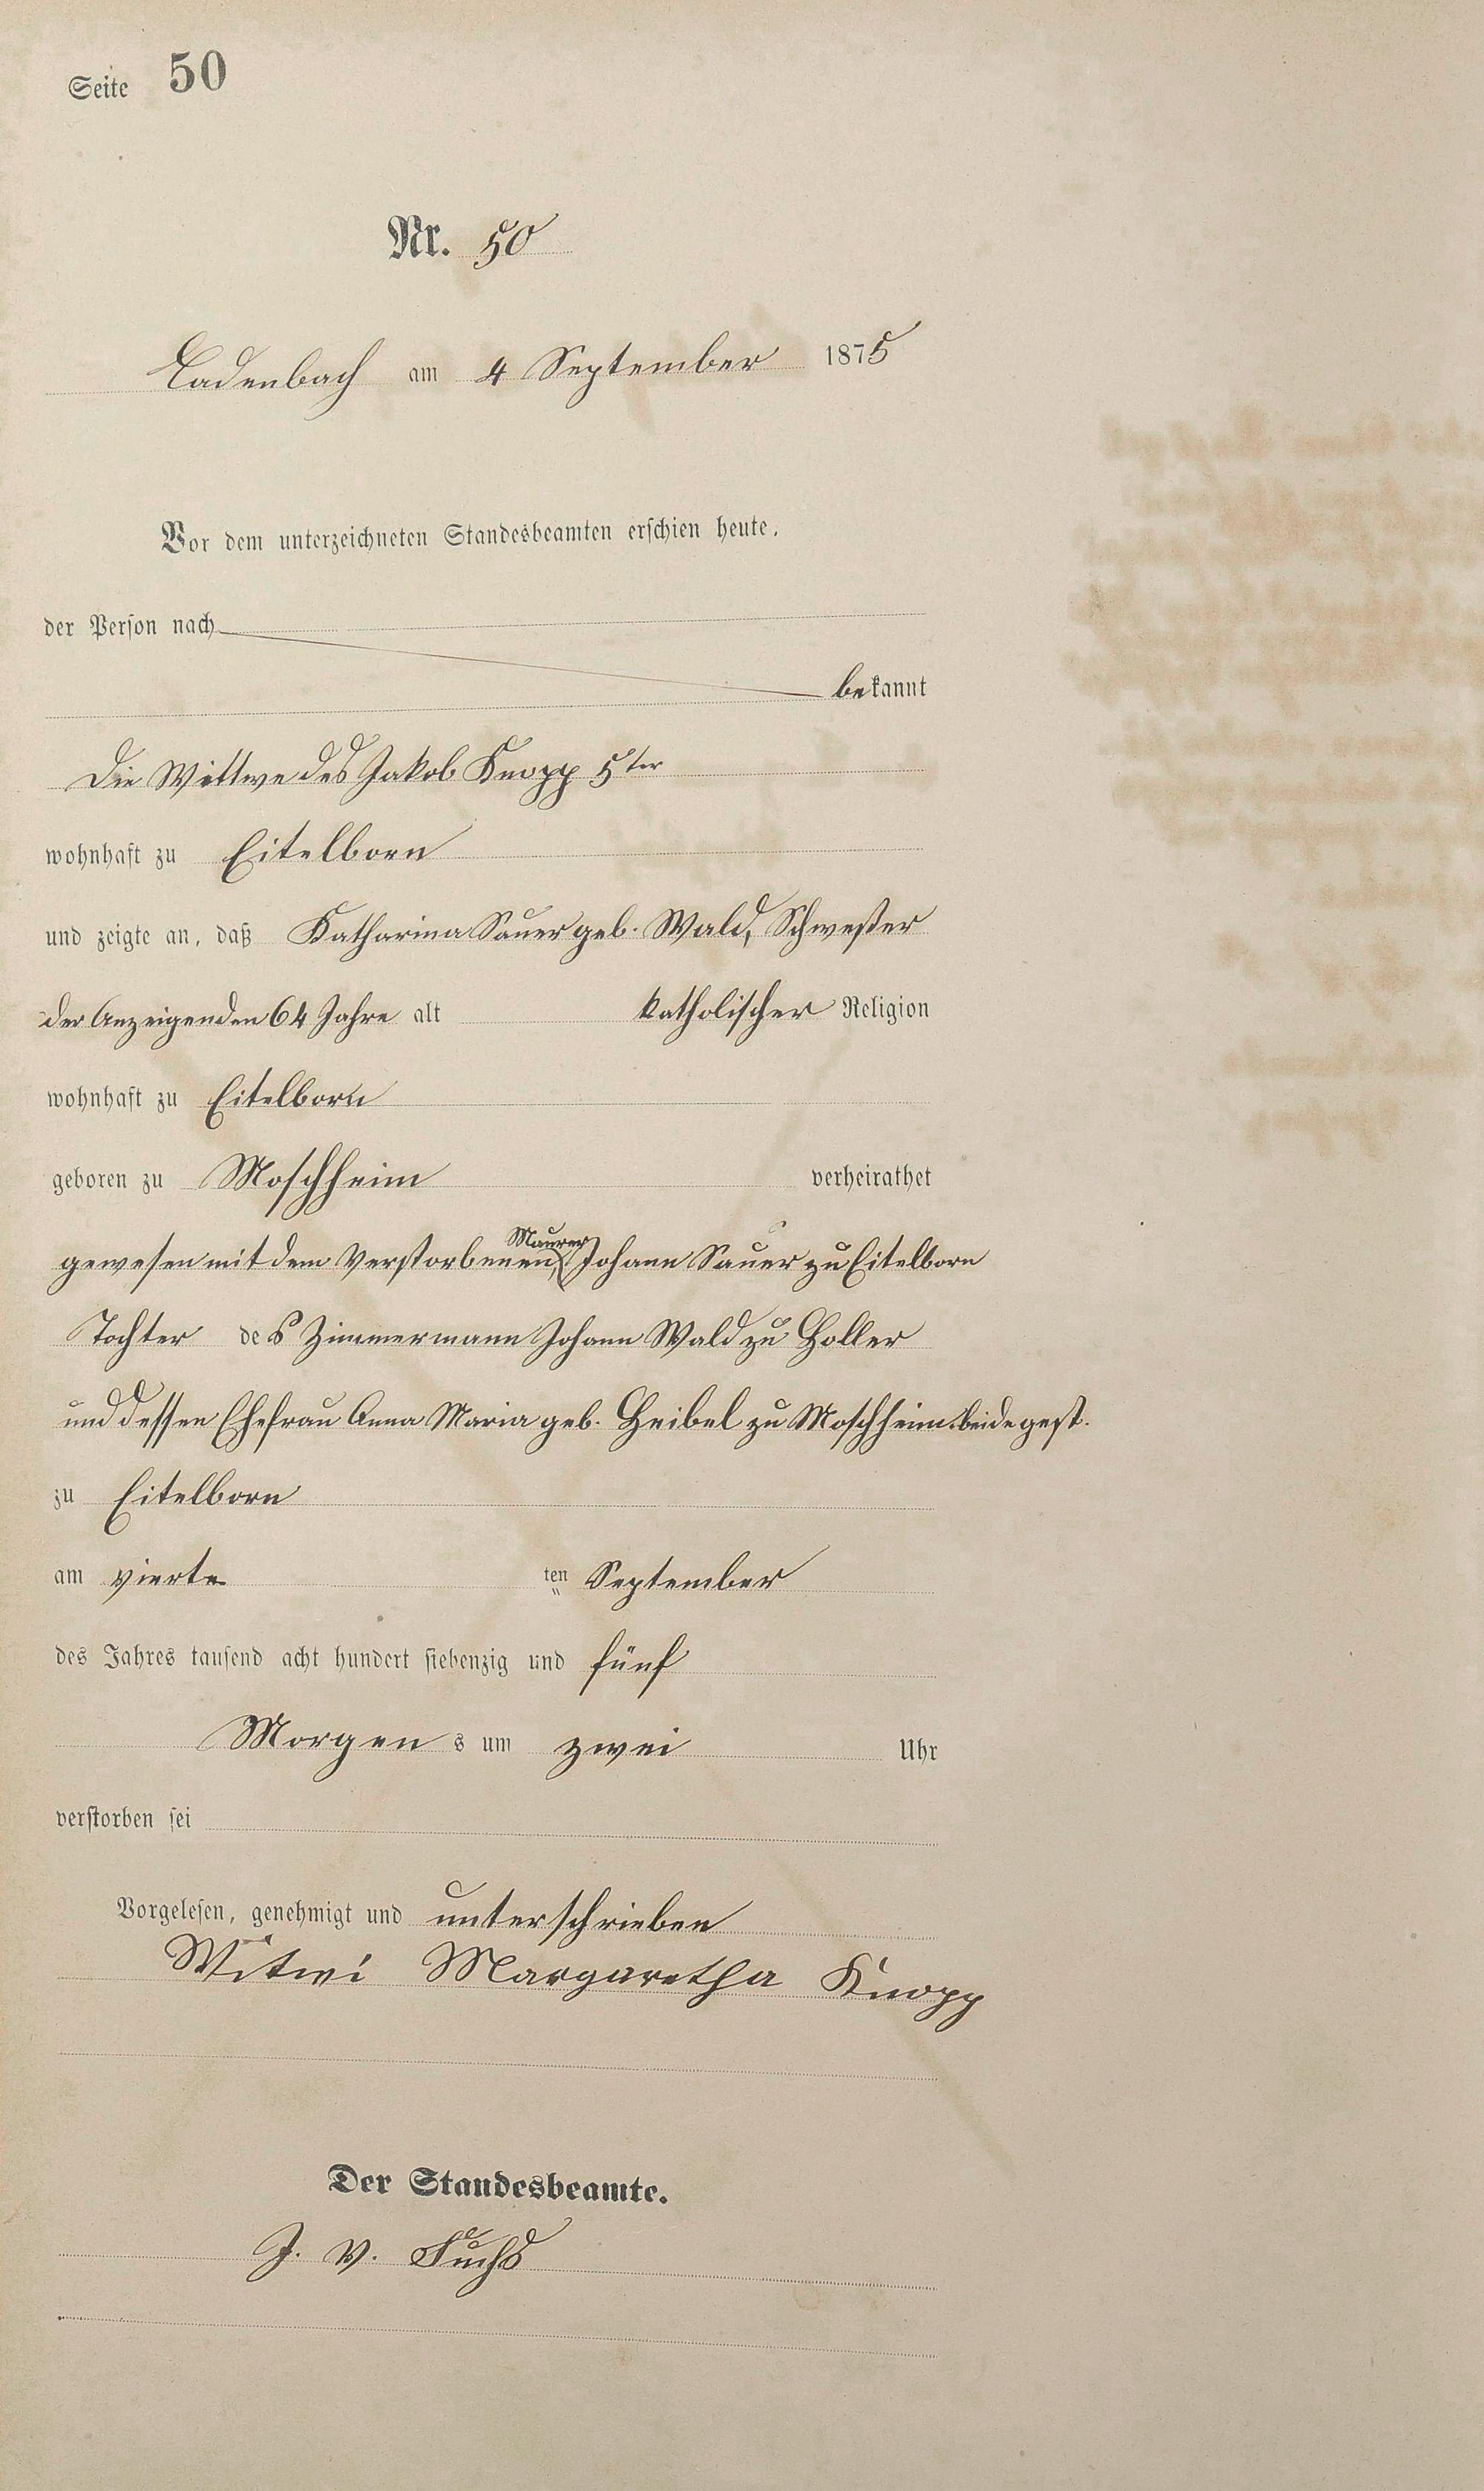 Seite 50
Nr. 50
Cadenbach am 4 September 1875
Vor dem unterzeichneten Standesbeamten erschien heute,
der Person nach
bekannt
Die Wittwe des Jakob Knopp 5ter
wohnhaft zu Eitelborn
und zeigte an, daß Katharina Sauer geb. Wald, Schwester
der Anzeigenden 64 Jahre alt katholischer Religion
wohnhaft zu Eitelborn
geboren zu Moschheim verheirathet
Maurer
gewesen mit dem verstorbenen Johann Sauer zu Eitelborn
Tochter des Zimmermann Johann Wald zu Holler
und dessen Ehefrau Anna Maria geb. Heibel zu Moschheim beide gest.
zu Eitelborn
am vierte ten September
des Jahres tausend acht hundert siebenzig und fünf
Morgens um zwei Uhr
verstorben sei
Vorgelesen, genehmigt und unterschrieben
Witwi Margaretha Knopp
Der Standesbeamte.
J. V. Fuchs